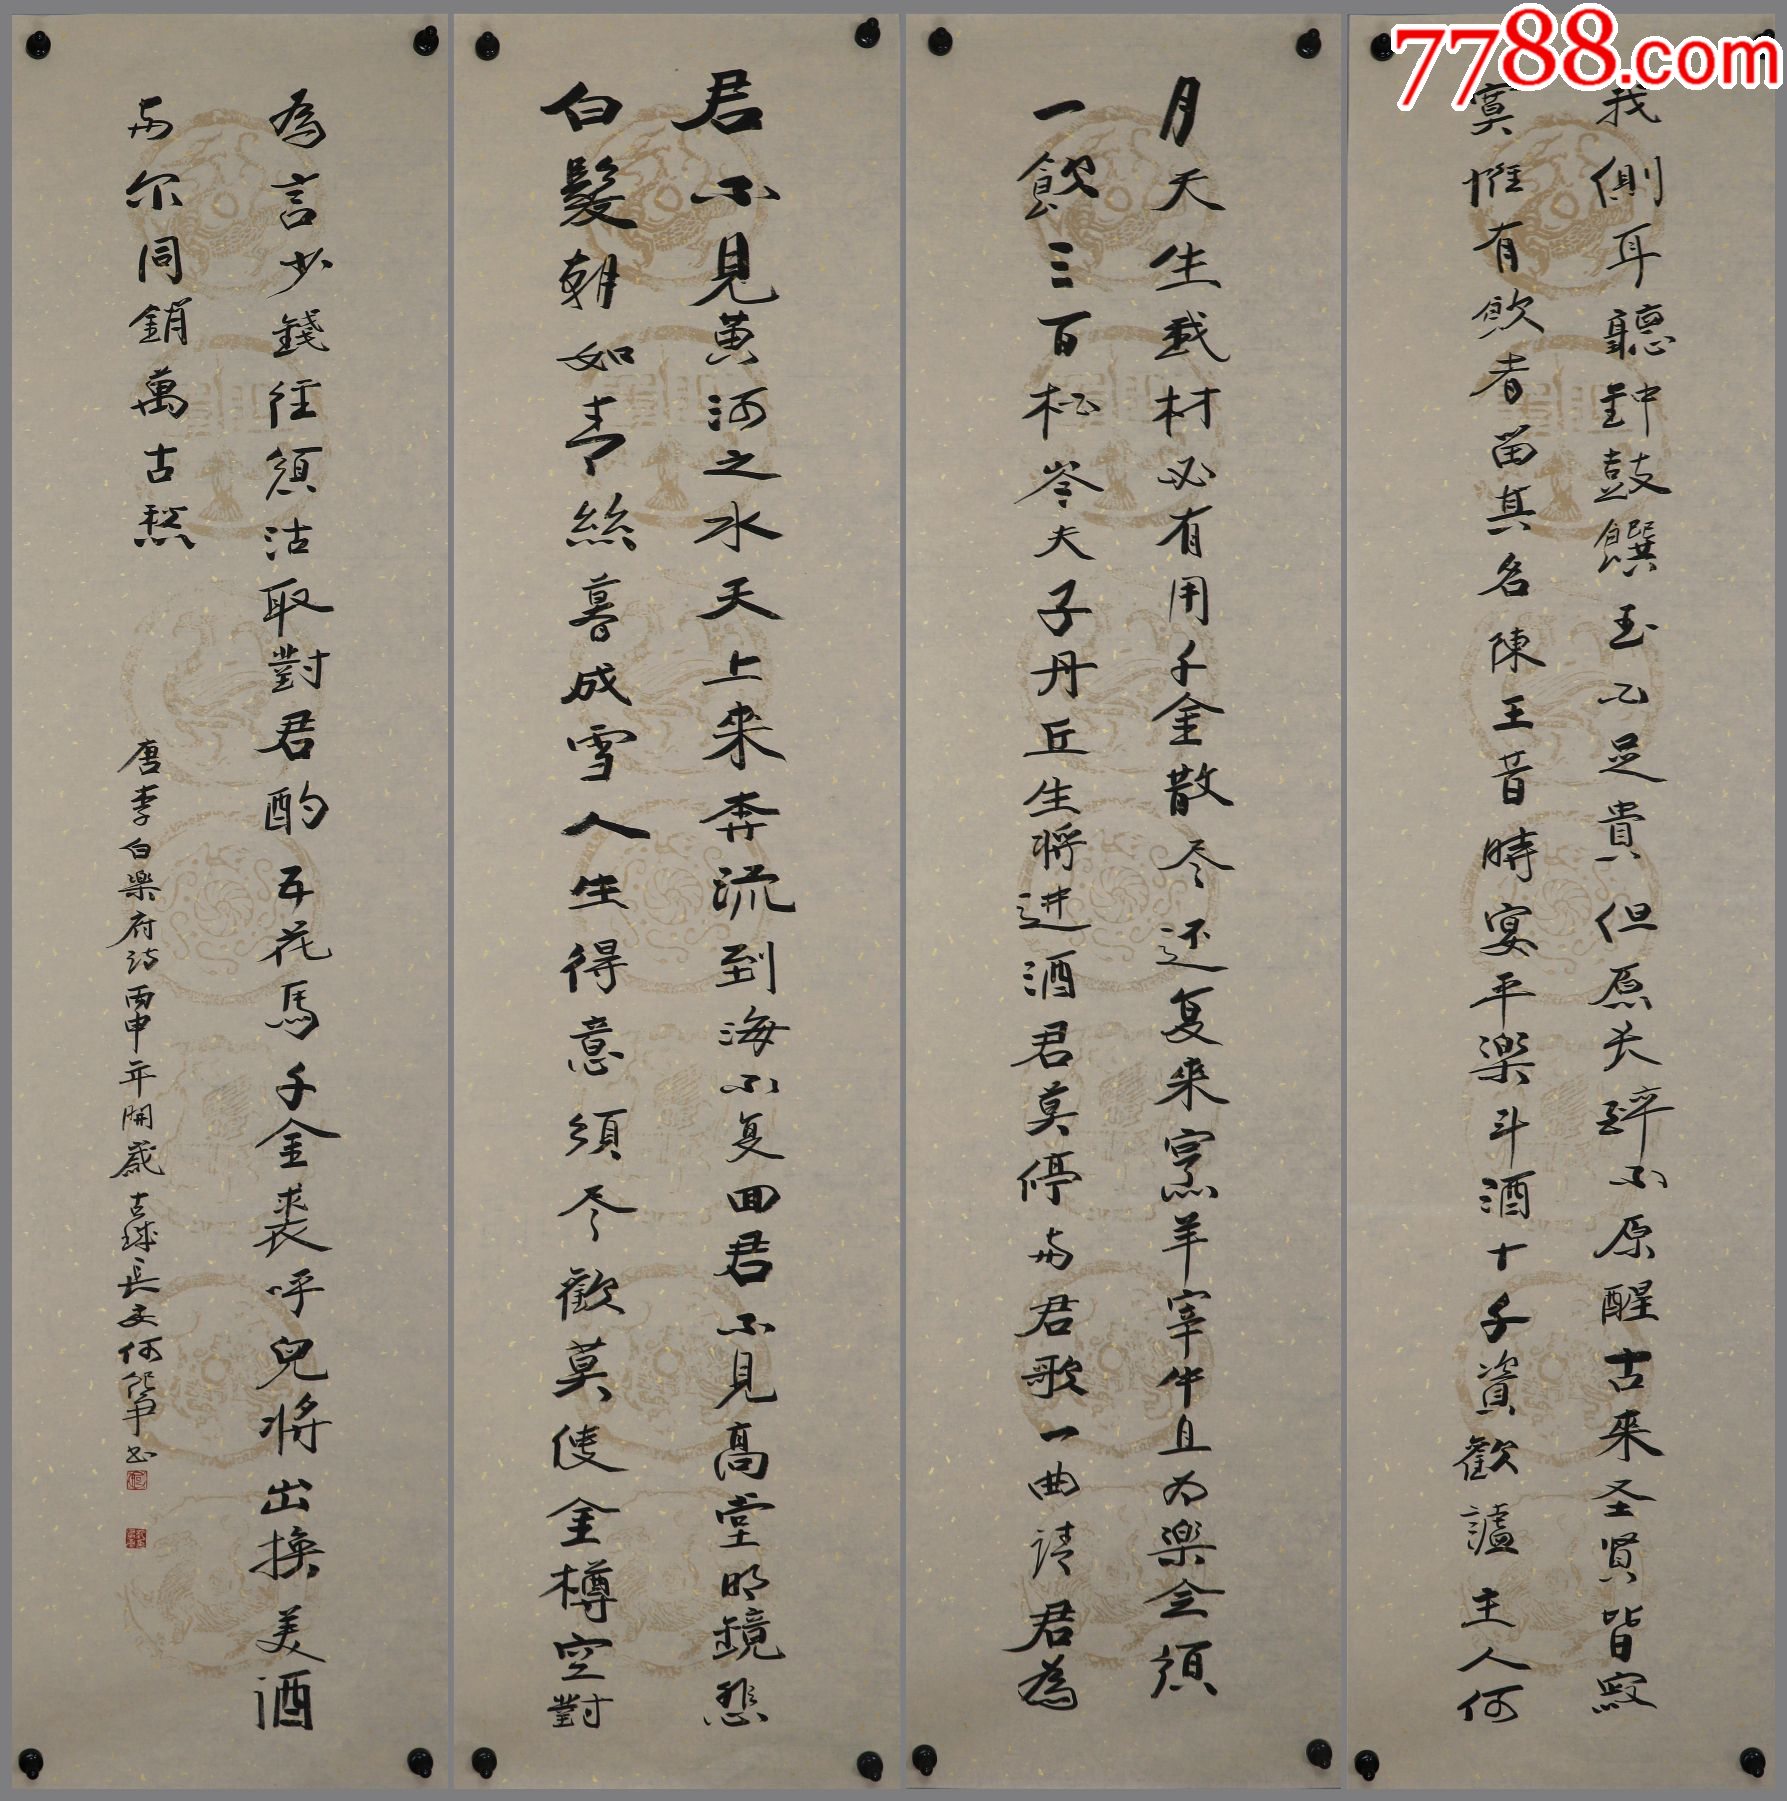 君不見黄河之水天上来奔流到海不复回君不見高堂明鏡悲
白髮朝如青絲暮成雪人生得意須尽歡莫使金樽空對
月天生我材必有用千金散尽还复来烹羊宰牛且为樂会須
一飲三百杯岑夫子丹丘生将进酒君莫停与君歌一曲请君為
我側耳聽鈡鼓饌玉不足貴但愿长醉不原醒古来圣贤皆寂
寞惟有飲者留其名陳王昔時宴平樂斗酒十千資歡謔主人何
為言少錢径須沽取對君酌五花馬千金裘呼兒将出换美酒
与尔同銷萬古愁
唐李白樂府诗丙申年開歲古城長安何书
7788.com